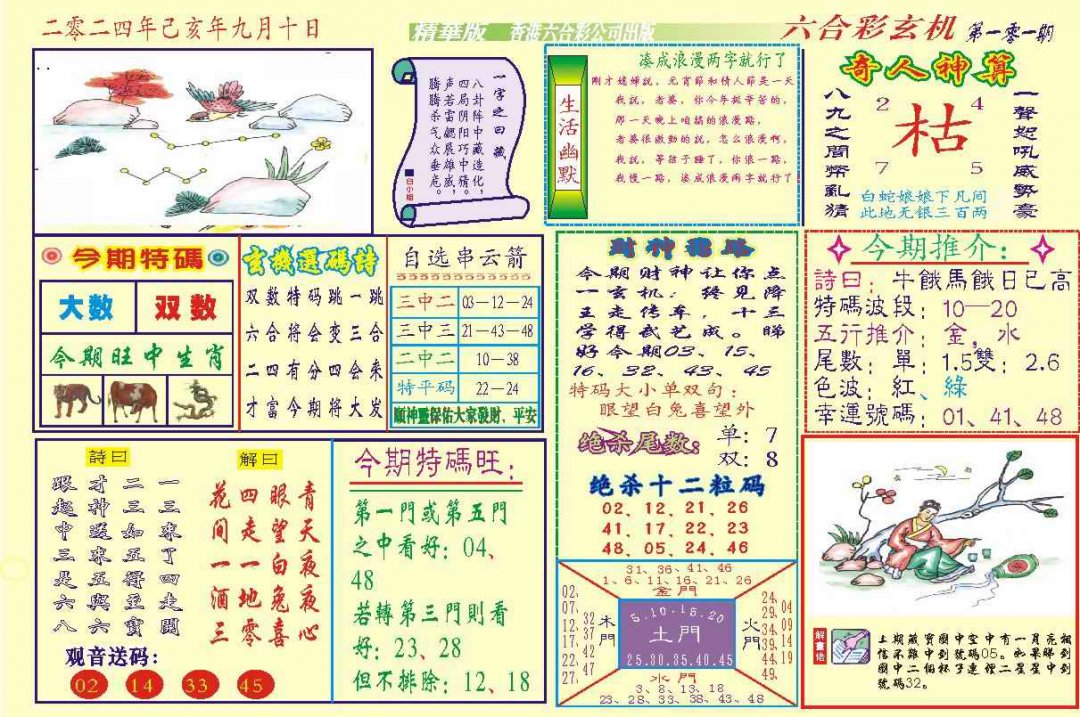 二零二四年己亥年九月十日
精華版 香港六合彩公司出版
六合彩玄机 第一零一期
一字之曰藏
八卦阵中藏造化，
四局阴阳巧中猜。
声若雷
腾腾杀气众垂危。
白小姐
生活幽默
凑成浪漫两字就行了
刚才媳婦説，元宵節和情人節是一天
我説，老婆，你今年挺辛苦的，
那一天晚上咱搞的浪漫點，
老婆很激動的説，怎么浪漫啊，
我説，等孩子睡了，你浪一點，
我慢一點，凑成浪漫两字就行了
奇人神算
一聲恕吼威勢豪
八九之間幣亂猜
2 4
枯
7 5
白蛇娘娘下凡间
此地无银三百两
今期特碼
大数 双数
今期旺中生肖
玄機選碼詩
双数特码跳一跳
六合将会变三合
二四有分四会来
才富今期将大发
自选串云箭
三中二 03—12—24
三中三 21—43—48
二中二 10—38
特平码 22—24
願神靈保佑大家發財、平安
财神
今期财神让你点
一玄机，终见降
主走传奔，十三
学得武艺成。睇
好今期03、15、
16、32、43、45
特码大小单双句：
眼望白兔喜望外
绝杀尾数： 单：7
双：8
绝杀十二粒码
02、12、21、26
41、17、22、23
48、05、24、46
今期推介：
詩曰：牛餓馬餓日已高
特碼波段：10—20
五行推介：金，水
尾數：單：1.5雙：2.6
色波：紅、綠
幸運號碼：01、41、48
詩曰
一三来了四走開
二三如五得至寶
才神送来五與六
跟起中三是六八
解曰
青天夜夜心
眼望白兔喜
四走一地零
花間一酒三
观音送码：
02 14 33 45
今期特碼旺：
第一門或第五門
之中看好：04、
48
若轉第三門則看
好：23、28
但不排除：12、18
31、36、41、46
1、6、11、16、21、26
金門
02、07、12、17、22、27、
32、37、42、47
木門
5.10.15.20
土門
25.30.35.40.45
火門
24、29、34、39、44、49、
04、09、14、19
水門
3、8、13、18
23、28、33、38、43、48
解畫佬
上期藏寶圖中空中有一月亮相
信不難中到號碼05。如果睇到
圖中二個杯子連埋二星星中到
號碼32。